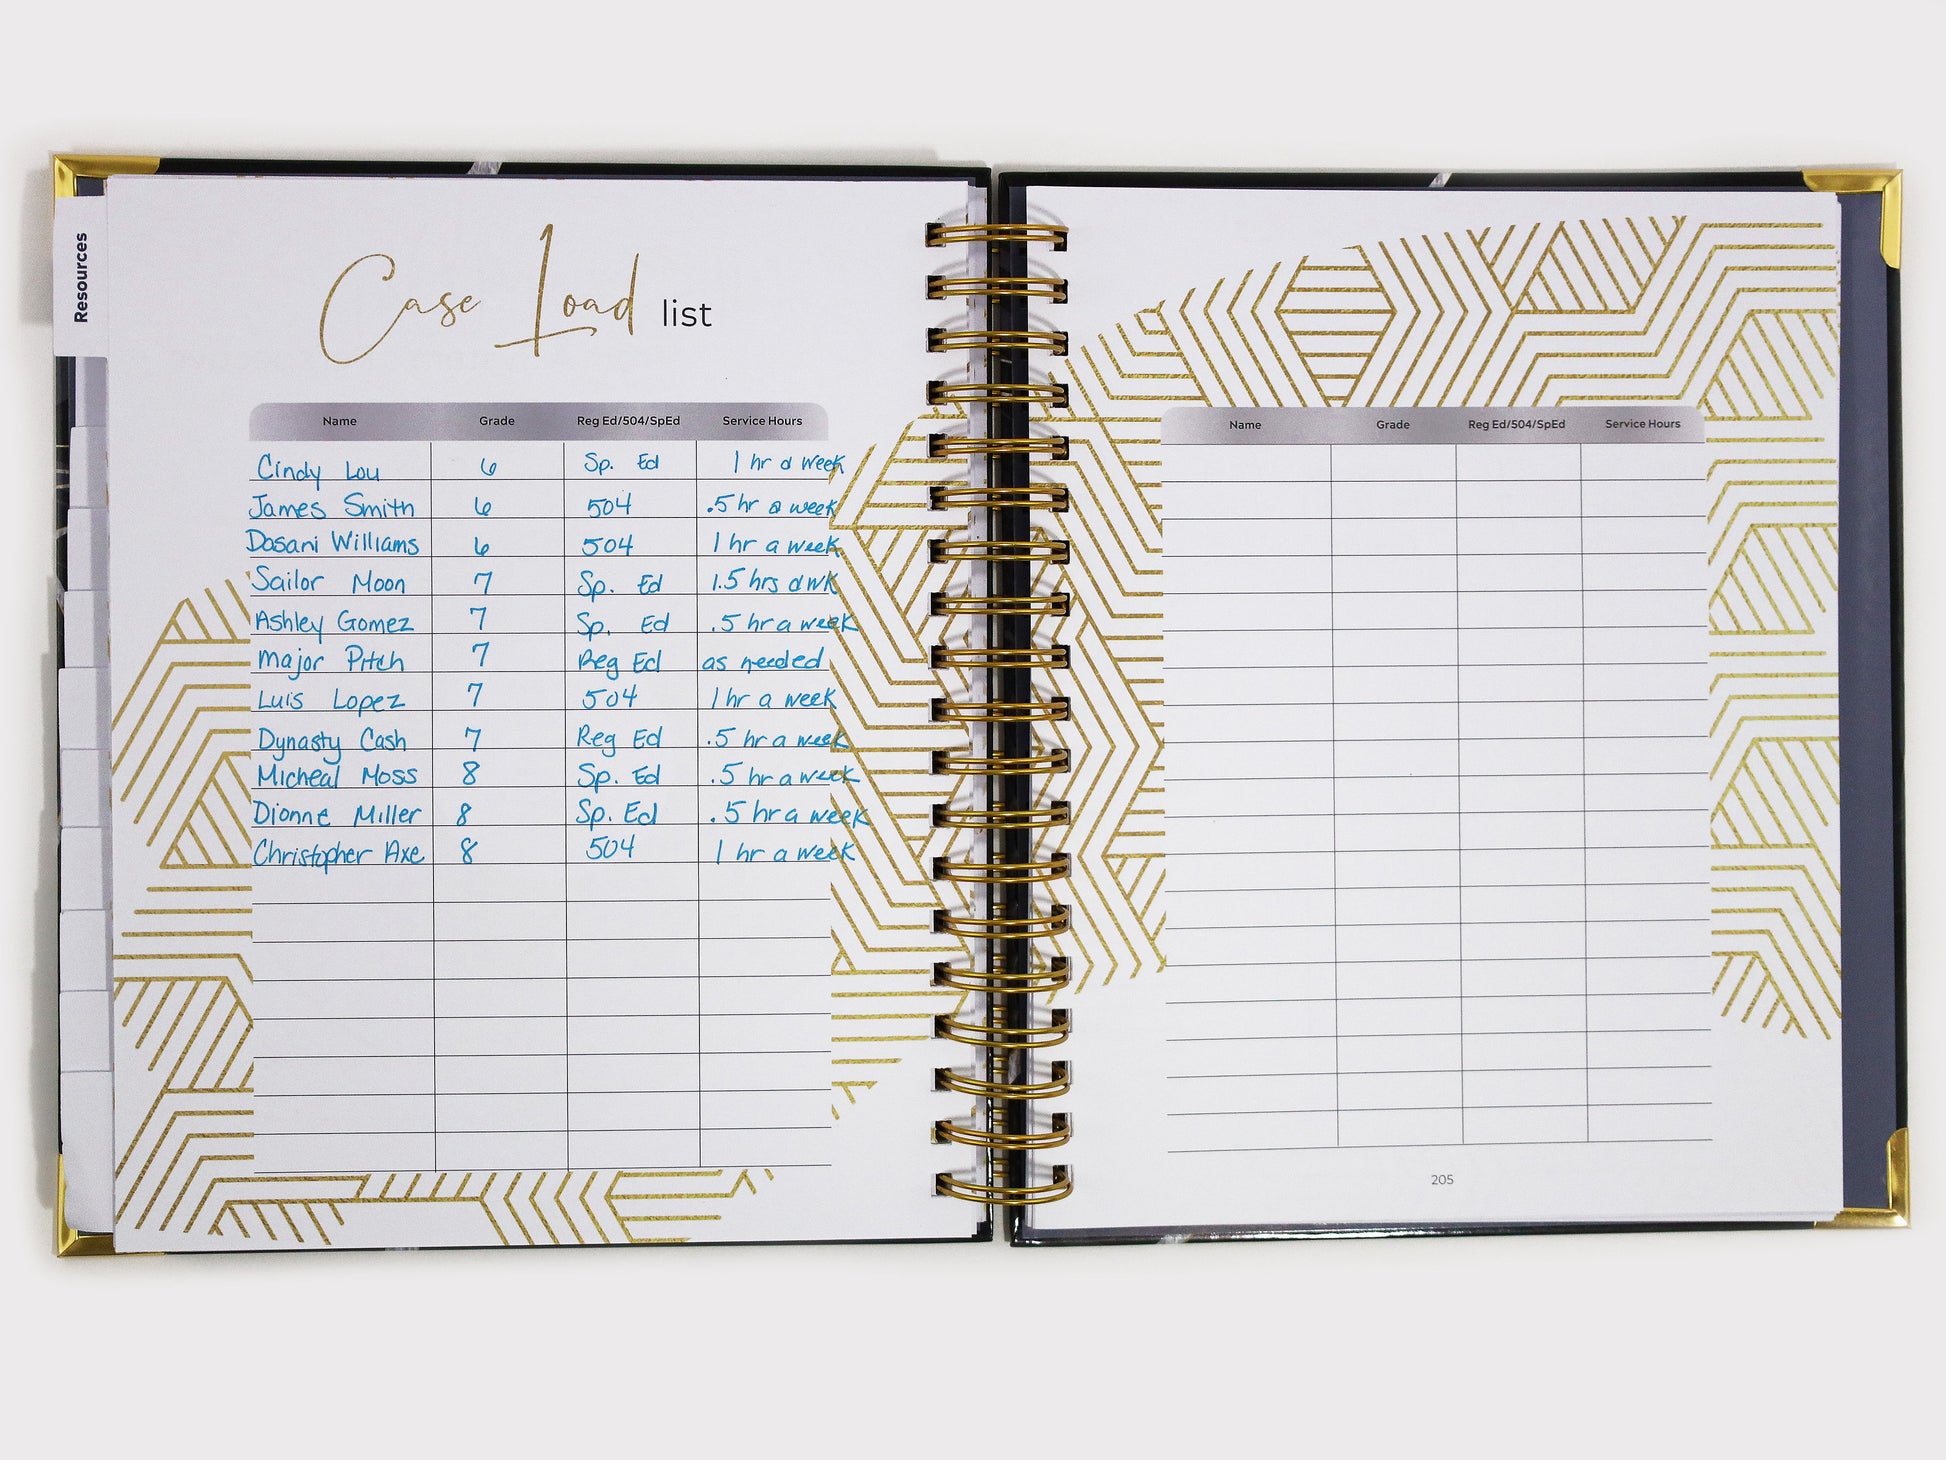 Resources
Case Load list
Name Grade Reg Ed/504/SpEd Service Hours
Cindy Lou 6 Sp. Ed 1 hr a week
James Smith 6 504 .5 hr a week
Dasani Williams 6 504 1 hr a week
Sailor Moon 7 Sp. Ed 1.5 hrs a wk
Ashley Gomez 7 Sp. Ed .5 hr a week
Major Pitch 7 Reg Ed as needed
Luis Lopez 7 504 1 hr a week
Dynasty Cash 7 Reg Ed .5 hr a week
Micheal Moss 8 Sp. Ed .5 hr a week
Dionne Miller 8 Sp. Ed .5 hr a week
Christopher Axe 8 504 1 hr a week
Name Grade Reg Ed/504/SpEd Service Hours
205